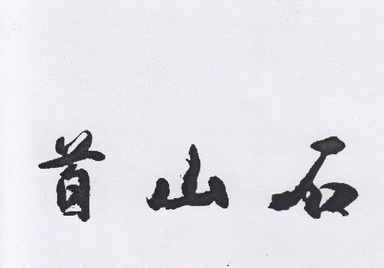 首山石